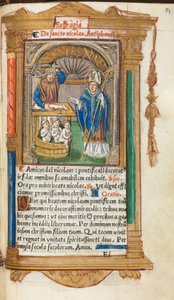 Suffragia
De sancto nicolao. Antiphona.
Amicus dei nicolaus: pontificali decoratus
infula omnibus se amabilem exhibuit.
Ora pro nobis beate nicolae. Ut digni efficiamur
promissionibus christi.
Deus qui beatum nicolaum pontificem tuum
innumeris decorasti miraculis: tribue nobis
quesumus: ut eius meritis et precibus a gehenne
incendiis liberemur. Per dominum nostrum
iesum christum filium tuum. Qui tecum vivit
et regnat in unitate spiritussancti deus. Per
omnia secula seculorum. Amen.